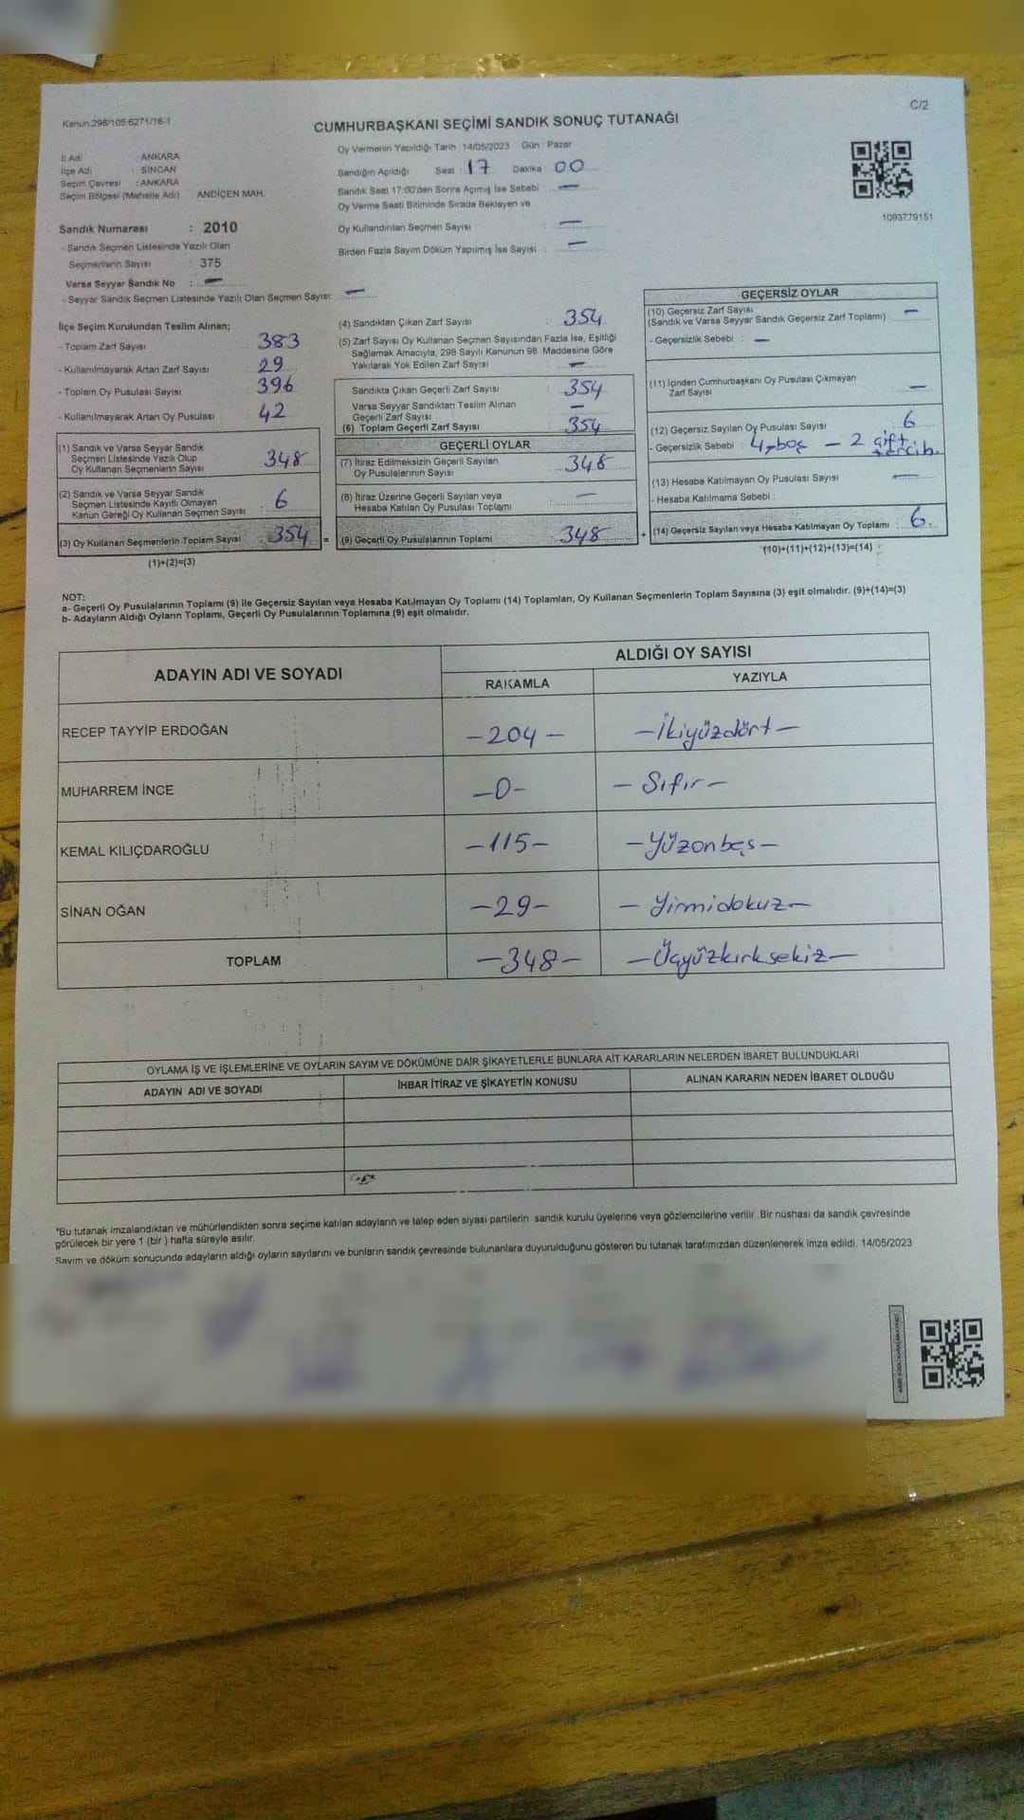 C/2
Kanun:298/105-6271/16-1
CUMHURBAŞKANI SEÇİMİ SANDIK SONUÇ TUTANAĞI
İl Adı : ANKARA
İlçe Adı : SİNCAN
Seçim Çevresi : ANKARA
Seçim Bölgesi (Mahalle Adı) ANDİÇEN MAH.
Oy Vermenin Yapıldığı Tarih 14/05/2023 Gün : Pazar
Sandığın Açıldığı Saat : 17 Dakika : 00
Sandık Saat 17:00'den Sonra Açılmış İse Sebebi —
Oy Verme Saati Bitiminde Sırada Bekleyen ve
Oy Kullandırılan Seçmen Sayısı —
Birden Fazla Sayım Döküm Yapılmış İse Sayısı : —
1093779151
Sandık Numarası : 2010
- Sandık Seçmen Listesinde Yazılı Olan
Seçmenlerin Sayısı : 375
Varsa Seyyar Sandık No : —
- Seyyar Sandık Seçmen Listesinde Yazılı Olan Seçmen Sayısı: —
İlçe Seçim Kurulundan Teslim Alınan;
- Toplam Zarf Sayısı : 383
- Kullanılmayarak Artan Zarf Sayısı : 29
- Toplam Oy Pusulası Sayısı : 396
- Kullanılmayarak Artan Oy Pusulası : 42
(1) Sandık ve Varsa Seyyar Sandık
Seçmen Listesinde Yazılı Olup
Oy Kullanan Seçmenlerin Sayısı : 348
(2) Sandık ve Varsa Seyyar Sandık
Seçmen Listesinde Kayıtlı Olmayan
Kanun Gereği Oy Kullanan Seçmen Sayısı : 6
(3) Oy Kullanan Seçmenlerin Toplam Sayısı : 354 =
(1)+(2)=(3)
(4) Sandıktan Çıkan Zarf Sayısı : 354
(5) Zarf Sayısı Oy Kullanan Seçmen Sayısından Fazla İse, Eşitliği
Sağlamak Amacıyla, 298 Sayılı Kanunun 98. Maddesine Göre
Yakılarak Yok Edilen Zarf Sayısı : —
Sandıkta Çıkan Geçerli Zarf Sayısı : 354
Varsa Seyyar Sandıktan Teslim Alınan
Geçerli Zarf Sayısı : —
(6) Toplam Geçerli Zarf Sayısı : 354
GEÇERLİ OYLAR
(7) İtiraz Edilmeksizin Geçerli Sayılan
Oy Pusulalarının Sayısı : 348
(8) İtiraz Üzerine Geçerli Sayılan veya
Hesaba Katılan Oy Pusulası Toplamı : —
(9) Geçerli Oy Pusulalarının Toplamı : 348 +
GEÇERSİZ OYLAR
(10) Geçersiz Zarf Sayısı
(Sandık ve Varsa Seyyar Sandık Geçersiz Zarf Toplamı) : —
- Geçersizlik Sebebi : —
(11) İçinden Cumhurbaşkanı Oy Pusulası Çıkmayan
Zarf Sayısı : —
(12) Geçersiz Sayılan Oy Pusulası Sayısı : 6
- Geçersizlik Sebebi : 4-boş — 2 çift tercih.
(13) Hesaba Katılmayan Oy Pusulası Sayısı : —
- Hesaba Katılmama Sebebi :
(14) Geçersiz Sayılan veya Hesaba Katılmayan Oy Toplamı : 6.
(10)+(11)+(12)+(13)=(14)
NOT:
a- Geçerli Oy Pusulalarının Toplamı (9) ile Geçersiz Sayılan veya Hesaba Katılmayan Oy Toplamı (14) Toplamları, Oy Kullanan Seçmenlerin Toplam Sayısına (3) eşit olmalıdır. (9)+(14)=(3)
b- Adayların Aldığı Oyların Toplamı, Geçerli Oy Pusulalarının Toplamına (9) eşit olmalıdır.
ADAYIN ADI VE SOYADI ALDIĞI OY SAYISI
RAKAMLA YAZIYLA
RECEP TAYYİP ERDOĞAN -204- -İkiyüzdört-
MUHARREM İNCE -0- -Sıfır-
KEMAL KILIÇDAROĞLU -115- -Yüzonbeş-
SİNAN OĞAN -29- -Yirmidokuz-
TOPLAM -348- -Üçyüzkırksekiz-
OYLAMA İŞ VE İŞLEMLERİNE VE OYLARIN SAYIM VE DÖKÜMÜNE DAİR ŞİKAYETLERLE BUNLARA AİT KARARLARIN NELERDEN İBARET BULUNDUKLARI
ADAYIN ADI VE SOYADI İHBAR İTİRAZ VE ŞİKAYETİN KONUSU ALINAN KARARIN NEDEN İBARET OLDUĞU
"Bu tutanak imzalandıktan ve mühürlendikten sonra seçime katılan adayların ve talep eden siyasi partilerin sandık kurulu üyelerine veya gözlemcilerine verilir. Bir nüshası da sandık çevresinde
görülecek bir yere 1 (bir ) hafta süreyle asılır.
Sayım ve döküm sonucunda adayların aldığı oyların sayılarını ve bunların sandık çevresinde bulunanlara duyurulduğunu gösteren bu tutanak tarafımızdan düzenlenerek imza edildi. 14/05/2023